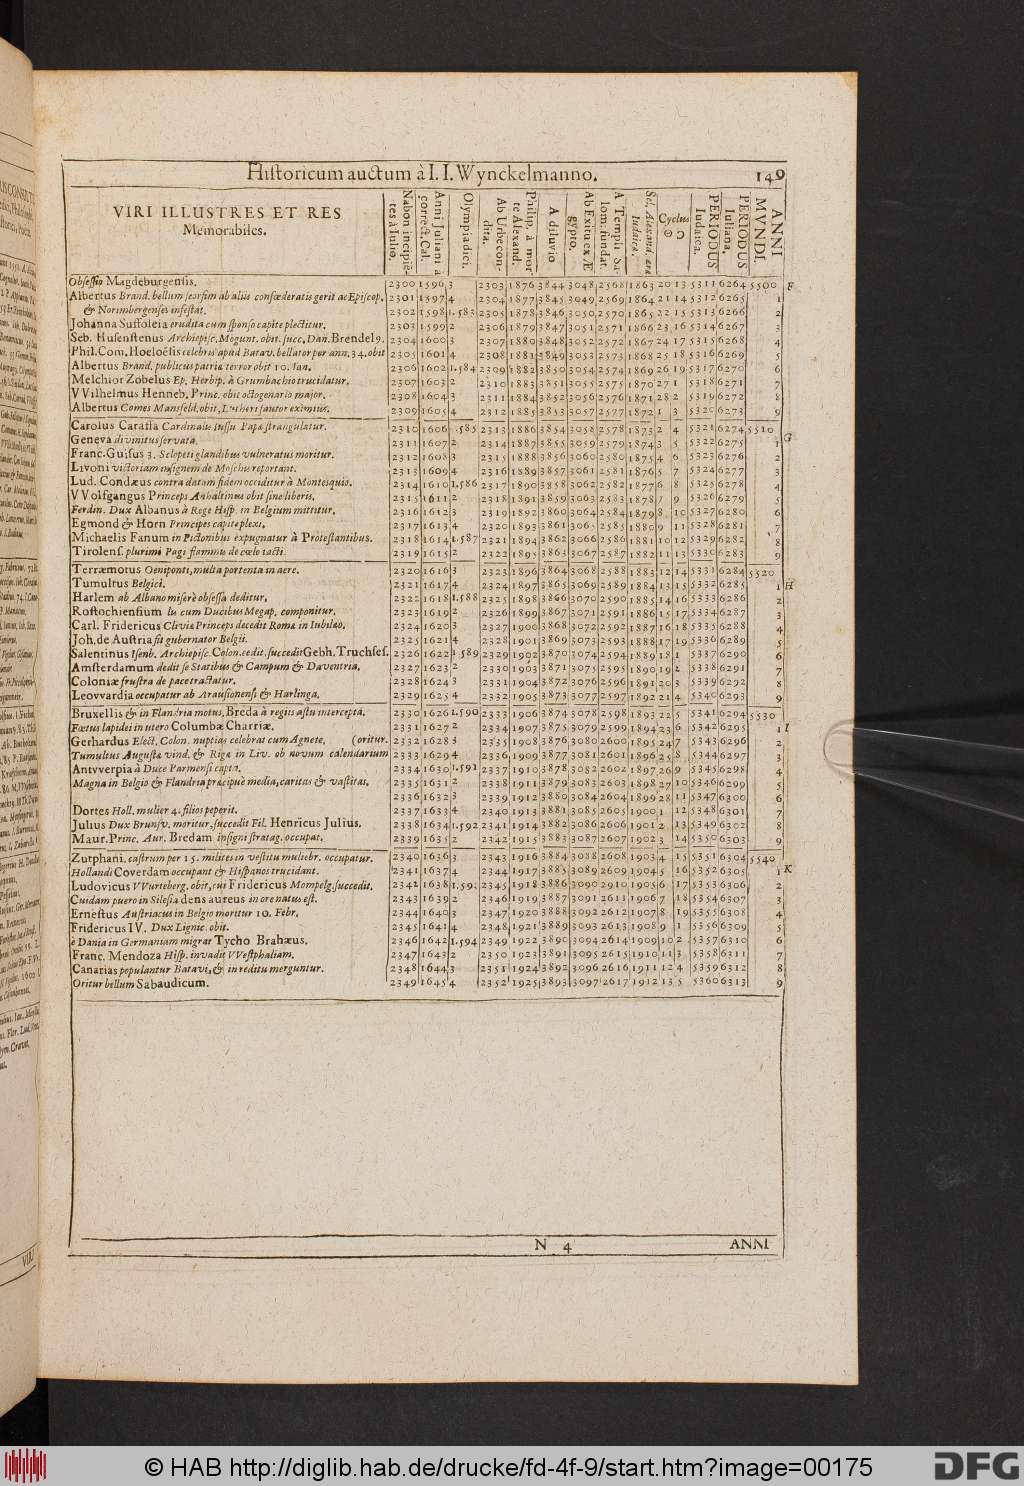 Historicum auctum à I. I. Wynckelmanno. 149
VIRI ILLUSTRES ET RES
Memorabiles.
Nabon incipiē-
tes à Iulio.
Anni Juliani à
correct. Cal.
Olympiadici.
Ab Urbe con-
dita.
Philip. à mor
te Alexand.
A diluvio
Ab Exitu ex Æ
gypto.
A Templi Sa-
lom. fundat.
Sel. Alexand. æra
Iudaica.
Cyclus
☉ ☽
PERIODUS
Iudaica.
PERIODUS
Iuliana.
ANNI
MVNDI.
Obsessio Magdeburgensis. 2300 1596 3 2303 1876 3844 3048 2568 1863 20 13 5311 6264 5500 F
Albertus Brand. bellum seorsim ab aliis confœderatis gerit ac Episcop. 2301 1597 4 2304 1877 3845 3049 2569 1864 21 14 5312 6265 1
& Norimbergenses infestat. 2302 1598 1.583 2305 1878 3846 3050 2570 1865 22 15 5313 6266 2
Johanna Suffolcia erudita cum sponso capite plectitur. 2303 1599 2 2306 1879 3847 3051 2571 1866 23 16 5314 6267 3
Seb. Husenstenus Archiepisc. Mogunt. obit. succ. Dan. Brendel9. 2304 1600 3 2307 1880 3848 3052 2572 1867 24 17 5315 6268 4
Phil. Com. Hoeloēsis celebris apud Batav. bellator per ann. 34. obit 2305 1601 4 2308 1881 3849 3053 2573 1868 25 18 5316 6269 5
Albertus Brand. publicus patriæ terror obit 10. Ian. 2306 1602 1.584 2309 1882 3850 3054 2574 1869 26 19 5317 6270 6
Melchior Zobelus Ep. Herbip. à Grumbachio trucidatur. 2307 1603 2 2310 1883 3851 3055 2575 1870 27 1 5318 6271 7
VVilhelmus Henneb. Princ. obit octogenario major. 2308 1604 3 2311 1884 3852 3056 2576 1871 28 2 5319 6272 8
Albertus Comes Mansfeld. obit, Lutheri fautor eximius. 2309 1605 4 2312 1885 3853 3057 2577 1872 1 3 5320 6273 9
Carolus Caraffa Cardinalis jussu Papæ strangulatur. 2310 1606 .585 2313 1886 3854 3058 2578 1873 2 4 5321 6274 5510 G
Geneva divinitus servata. 2311 1607 2 2314 1887 3855 3059 2579 1874 3 5 5322 6275 1
Franc. Guisus 3. Sclopeti glandibus vulneratus moritur. 2312 1608 3 2315 1888 3856 3060 2580 1875 4 6 5323 6276 2
Livoni victoriam insignem de Moschis reportant. 2313 1609 4 2316 1889 3857 3061 2581 1876 5 7 5324 6277 3
Lud. Condæus contra datam fidem occiditur à Montesquio. 2314 1610 1.586 2317 1890 3858 3062 2582 1877 6 8 5325 6278 4
VVolfgangus Princeps Anhaltinus obit sine liberis. 2315 1611 2 2318 1891 3859 3063 2583 1878 7 9 5326 6279 5
Ferdin. Dux Albanus à Rege Hisp. in Belgium mittitur. 2316 1612 3 2319 1892 3860 3064 2584 1879 8 10 5327 6280 6
Egmond & Horn Principes capite plexi. 2317 1613 4 2320 1893 3861 3065 2585 1880 9 11 5328 6281 7
Michaelis Fanum in Pictonibus expugnatur à Protestantibus. 2318 1614 1.587 2321 1894 3862 3066 2586 1881 10 12 5329 6282 8
Tirolens. plurimi Pagi flammis de cœlo tacti. 2319 1615 2 2322 1895 3863 3067 2587 1882 11 13 5330 6283 9
Terræmotus Oeniponti, multa portenta in aere. 2320 1616 3 2323 1896 3864 3068 2588 1883 12 14 5331 6284 5520
Tumultus Belgici. 2321 1617 4 2324 1897 3865 3069 2589 1884 13 15 5332 6285 1 H
Harlem ab Albano miserè obsessa deditur. 2322 1618 1.588 2325 1898 3866 3070 2590 1885 14 16 5333 6286 2
Rostochiensium lis cum Ducibus Megap. componitur. 2323 1619 2 2326 1899 3867 3071 2591 1886 15 17 5334 6287 3
Carl. Fridericus Cliviæ Princeps decedit Romæ in Iubilæo. 2324 1620 3 2327 1900 3868 3072 2592 1887 16 18 5335 6288 4
Joh. de Austria fit gubernator Belgii. 2325 1621 4 2328 1901 3869 3073 2593 1888 17 19 5336 6289 5
Salentinus Isenb. Archiepisc. Colon. cedit, succedit Gebh. Truchses. 2326 1622 1.589 2329 1902 3870 3074 2594 1889 18 1 5337 6290 6
Amsterdamum dedit se Statibus & Campum & Daventria. 2327 1623 2 2330 1903 3871 3075 2595 1890 19 2 5338 6291 7
Coloniæ frustra de pace tractatur. 2328 1624 3 2331 1904 3872 3076 2596 1891 20 3 5339 6292 8
Leovvardia occupatur ab Arausionensi & Harlinga. 2329 1625 4 2332 1905 3873 3077 2597 1892 21 4 5340 6293 9
Bruxellis & in Flandria motus, Breda à regiis astu intercepta. 2330 1626 1.590 2333 1906 3874 3078 2598 1893 22 5 5341 6294 5530
Fœtus lapidei in utero Columbæ Charriæ. 2331 1627 2 2334 1907 3875 3079 2599 1894 23 6 5342 6295 1 I
Gerhardus Elect. Colon. nuptias celebrat cum Agnete. (oritur. 2332 1628 5 2335 1908 3876 3080 2600 1895 24 7 5343 6296 2
Tumultus Augustæ vind. & Rigæ in Liv. ob novum calendarium 2333 1629 4 2336 1909 3877 3081 2601 1896 25 8 5344 6297 3
Antvverpia à Duce Parmensi capta. 2334 1630 1.591 2337 1910 3878 3082 2602 1897 26 9 5345 6298 4
Magna in Belgio & Flandria præcipuè media, caritas & vastitas. 2335 1631 2 2338 1911 3879 3083 2603 1898 27 10 5346 6299 5
2336 1632 3 2339 1912 3880 3084 2604 1899 28 11 5347 6300 6
Dortes Holl. mulier 4. filios peperit. 2337 1633 4 2340 1913 3881 3085 2605 1900 1 12 5348 6301 7
Julius Dux Brunsv. moritur, succedit Fil. Henricus Julius. 2338 1634 1.592 2341 1914 3882 3086 2606 1901 2 13 5349 6302 8
Maur. Princ. Aur. Bredam insigni stratag. occupat. 2339 1635 2 2342 1915 3883 3087 2607 1902 3 14 5350 6303 9
Zutphani. castrum per 15. milites in vestitu muliebr. occupatur. 2340 1636 3 2343 1916 3884 3088 2608 1903 4 15 5351 6304 5540
Hollandi Coverdam occupant & Hispanos trucidant. 2341 1637 4 2344 1917 3885 3089 2609 1904 5 16 5352 6305 1 K
Ludovicus VVurteberg. obit, cui Fridericus Mompelg. succedit. 2342 1638 1.593 2345 1918 3886 3090 2910 1905 6 17 5353 6306 2
Cuidam puero in Silesia dens aureus in ore natus est. 2343 1639 2 2346 1919 3887 3091 2611 1906 7 18 5354 6307 3
Ernestus Austriacus in Belgio moritur 10. Febr. 2344 1640 3 2347 1920 3888 3092 2612 1907 8 19 5355 6308 4
Fridericus IV. Dux Lignic. obit. 2345 1641 4 2348 1921 3889 3093 2613 1908 9 1 5356 6309 5
è Dania in Germaniam migrat Tycho Brahæus. 2346 1642 1.594 2349 1922 3890 3094 2614 1909 10 2 5357 6310 6
Franc. Mendoza Hisp. invadit VVestphaliam. 2347 1643 2 2350 1923 3891 3095 2615 1910 11 3 5358 6311 7
Canarias populantur Batavi, & in reditu merguntur. 2348 1644 3 2351 1924 3892 3096 2616 1911 12 4 5359 6312 8
Oritur bellum Sabaudicum. 2349 1645 4 2352 1925 3893 3097 2617 1912 13 5 5360 6313 9
N 4 ANNI
© HAB http://diglib.hab.de/drucke/fd-4f-9/start.htm?image=00175
DFG